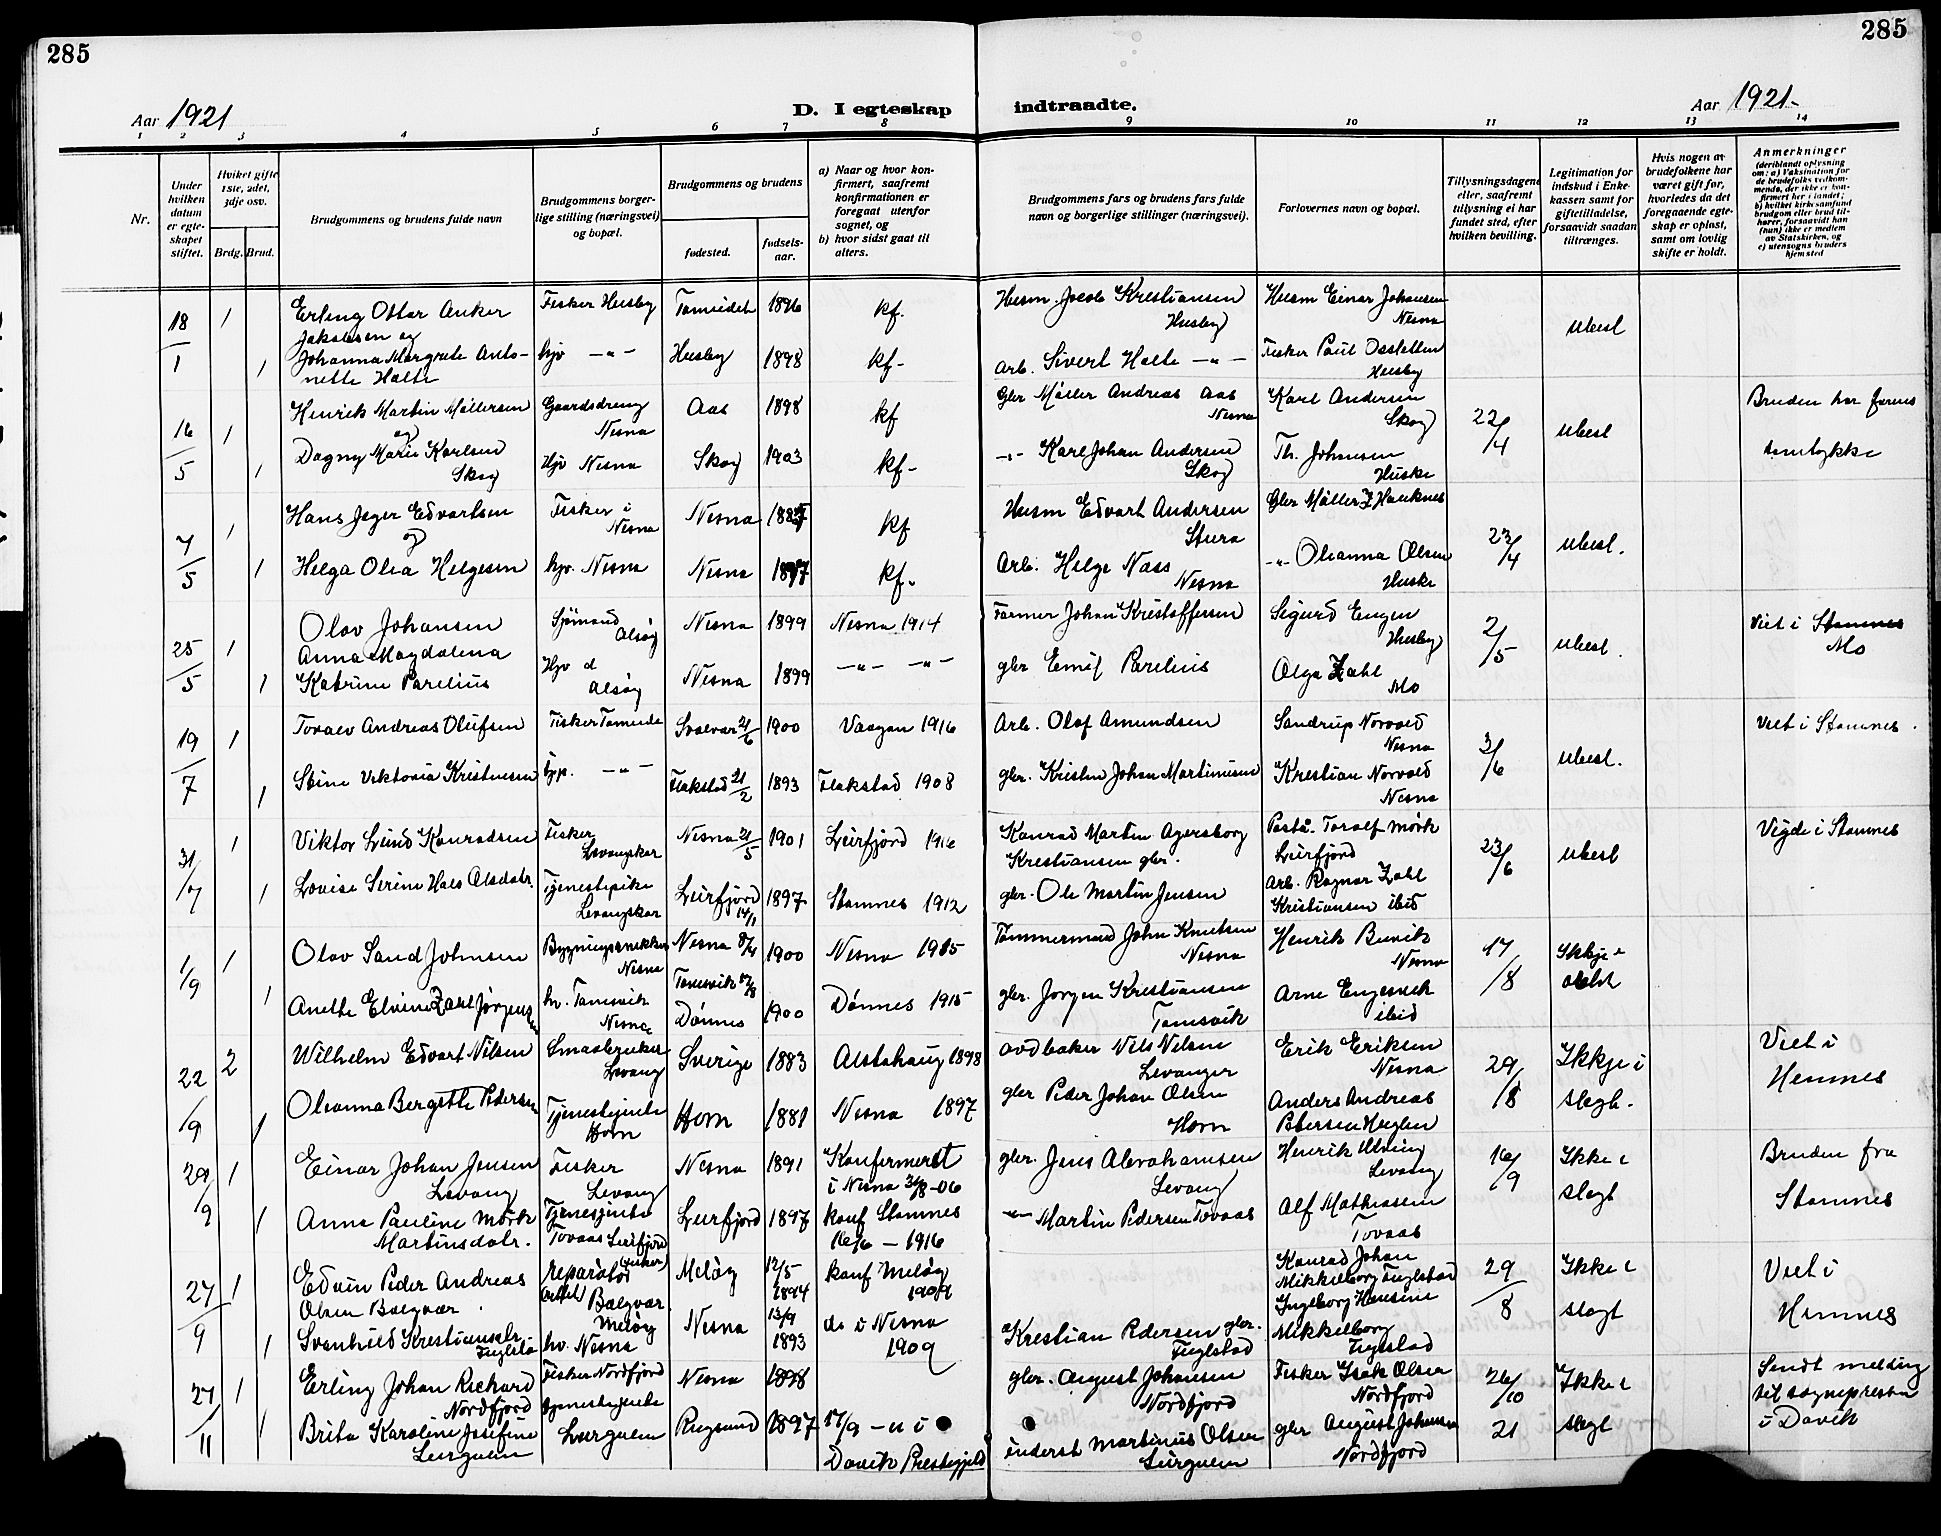 285
285
Aar 1921
D. I egteskap indtraadte.
Aar 1921-
1 2 3 4 5 6 7 8 9 10 11 12 13 14
Nr.
Under hvilken datum er egteskapet stiftet.
Hvilket gifte 1ste, 2det, 3dje osv.
Brdg. Brud.
Brudgommens og brudens fulde navn
Brudgommens borgerlige stilling (næringsvei) og bopæl.
Brudgommens og brudens
fødested.
fødselsaar.
a) Naar og hvor konfirmert, saafremt konfirmationen er foregaat utenfor sognet, og
b) hvor sidst gaat til alters.
Brudgommens fars og brudens fars fulde navn og borgerlige stillinger (næringsvei).
Forlovernes navn og bopæl.
Tillysningsdagene eller, saafremt tillysning ei har fundet sted, efter hvilken bevilling.
Legitimation for indskud i Enkekassen samt for giftetilladelse, forsaavidt saadan tiltrænges.
Hvis nogen av brudefolkene har været gift før, hvorledes da det foregaaende egteskap er opløst, samt om lovlig skifte er holdt.
Anmerkninger
(deriblandt oplysning om: a) Vaksination for de brudefolks vedkommende, der ikke er konfirmert her i landet; b) hvilket kirkesamfund brudgom eller brud tilhører, forsaavidt han (hun) ikke er medlem av Statskirken, og c) utensogns bruders hjemsted
18/1 1 Erling Ottar Anker Jakobsen og Fisker Husby 1896 kf. Husm. Jacob Krestiansen Husby Husm Einar Johansen Nesna ubesl
1 Johanna Margrete Antonette Halte hjv -"- Husby 1898 kf- Arb. Sivert Halte -"- Fisker Paul Husby
16/5 1 Henrik Martin Møllersen og Gaardsdreng Nesna Aas 1898 kf Gbr Møller Andreas Aas Nesna Karl Andersen Skog 22/4 ubesl Bruden har farens samtykke
1 Dagny Marie Karlsen Skog Hjv Nesna Skog 1903 kf- -"- Karl Johan Andersen Skog Th. Johansen Huske
7/5 1 Hans Jeger Edvartsen og Fisker i Nesna Nesna kf Husm Edvart Andersen Stura Gbr Møller Z Hauknes 23/4 ubesl.
1 Helga Olea Helgesen hjv. Nesna Nesna 1897 kf. Arb. Helge Nass Nesna -"- Oleanna Olsen Huske
25/5 1 Olav Johansen Sjømand Alsøy Nesna 1899 Nesna 1914 Farmer Johan Kristoffersen Sigurd Engen Husby 2/5 ubesl. Viet i Mo
1 Anna Magdalena Katrine Parelius Hjv d Alsøy Nesna 1899 -"- -"- gbr Emil Parelius Olga Zahl Mo
19/7 1 Toralv Andreas Olufsen Fisker Svolvær 21/6 1900 Vaagan 1916 Arb. Olaf Amundsen Sandrup Norvald Nesna 3/6 ubesl. Viet i Stamnes.
1 Stine Viktoria Kristensen -"- Flakstad 21/2 1893 Flakstad 1908 gbr. Kristen Johan Martinusen Krestian Norvald Nesna
31/7 1 Viktor Lund Konradsen Fisker Levangskar Nesna 21/5 1901 Leirfjord 1916 Konrad Martin Agersborg Krestiansen gbr. Toralf Mørk Leirfjord 23/6 ubesl Vigde i Stamnes
1 Lovise Serine Hals Olsdatr. Tjenestepike Levangskar Leirfjord 14/11 1897 Stamnes 1912 gbr. Ole Martin Jensen Arb. Ragnar Zahl Kristiansen ibid
1/9 1 Olav Sand Johnsen Bygningssnekker Nesna Nesna 8/4 1900 Nesna 1915 Tømmermand John Knutsen Nesna Henrik Buvik Nesna 17/8 Ikkje i
1 Anette Elvine Zahl Jørgensen hv. Tomsvik Nesna Tomsvik Dønnes 1900 Dønnes 1915 gbr. Jørgen Kristiansen Tomsvik Arne Engesvik ibid
22/9 2 Wilhelm Edvart Nilsen Smaabruker Levang Sverige 1883 Alstahaug 1898 Nils Nilsen Levanger Erik Eriksen Nesna 29/8 Ikkje i slegt. Viet i Hemnes
1 Oleanna Bergitte Pedersen Tjenestejente Horn Horn 1881 Nesna 1897 gbr Peder Johan Olsen Horn Anders Andreas Petersen
29/9 1 Einar Johan Jensen Levang Fisker Levang Nesna 1891 Konfermeret i Nesna -06 gbr. Jens Abrahamsen Levang Henrik Utsing Levang 16/9 Ikke i slegt Bruden fra Stamnes
1 Anna Pauline Mørk Martinsdatr. Tjenestejente Tovaas Leirfjord Leirfjord 1897 konf Stamnes 16/6 - 1916 -"- Martin Pedersen Tovaas Alf Mathiasen Tovaas
27/9 1 Edvin Peder Andreas Olsen Bolgvær. reparatør Bolgvær Meløy Meløy 12/5 1894 konf Meløy 1909 Konrad Johan Mikkelborg Fuglstad 29/8 Ikke i slegt Viet i Hemnes
1 Svanhild Krestiansdtr Fuglstad hv. Nesna Nesna 13/9 1893 do i Nesna 1909 Krestian Pedersen gbr. Fuglstad Ingeborg Hansine Mikkelborg Fuglstad
27/11 1 Erling Johan Richard Nordfjord Fisker Nordfjord Nesna 1898 gbr. August Johansen Nordfjord Fisker Isak Olsen Nordfjord 26/10 Ikke i slegt Sendt melding til sognepresten i Davik
1 Brita Karoline Josefine Lurgulen tjenestejente Lurgulen Rugsund 1897 17/9 - 11 i Davik Prestegjeld inderst Martinus Olsen gbr August Johansen Nordfjord 21